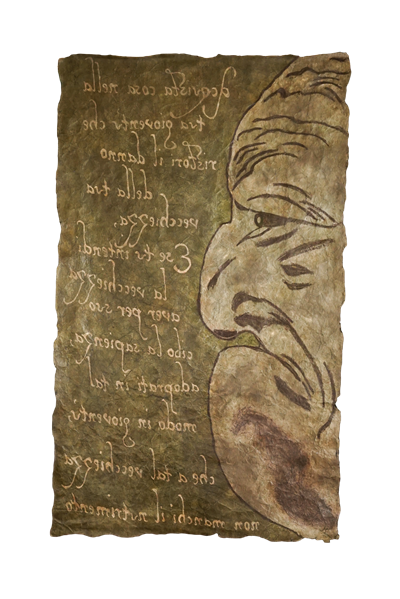 Acquista cosa nella
tva gioventv che
ristori il danno
della tva
vecchiezza,
E se tv intendi
la vecchiezza
aver per svo
cibo la sapienza,
adoprati in tal
modo in gioventv,
che a tal vecchiezza
non manchi il nvtrimento